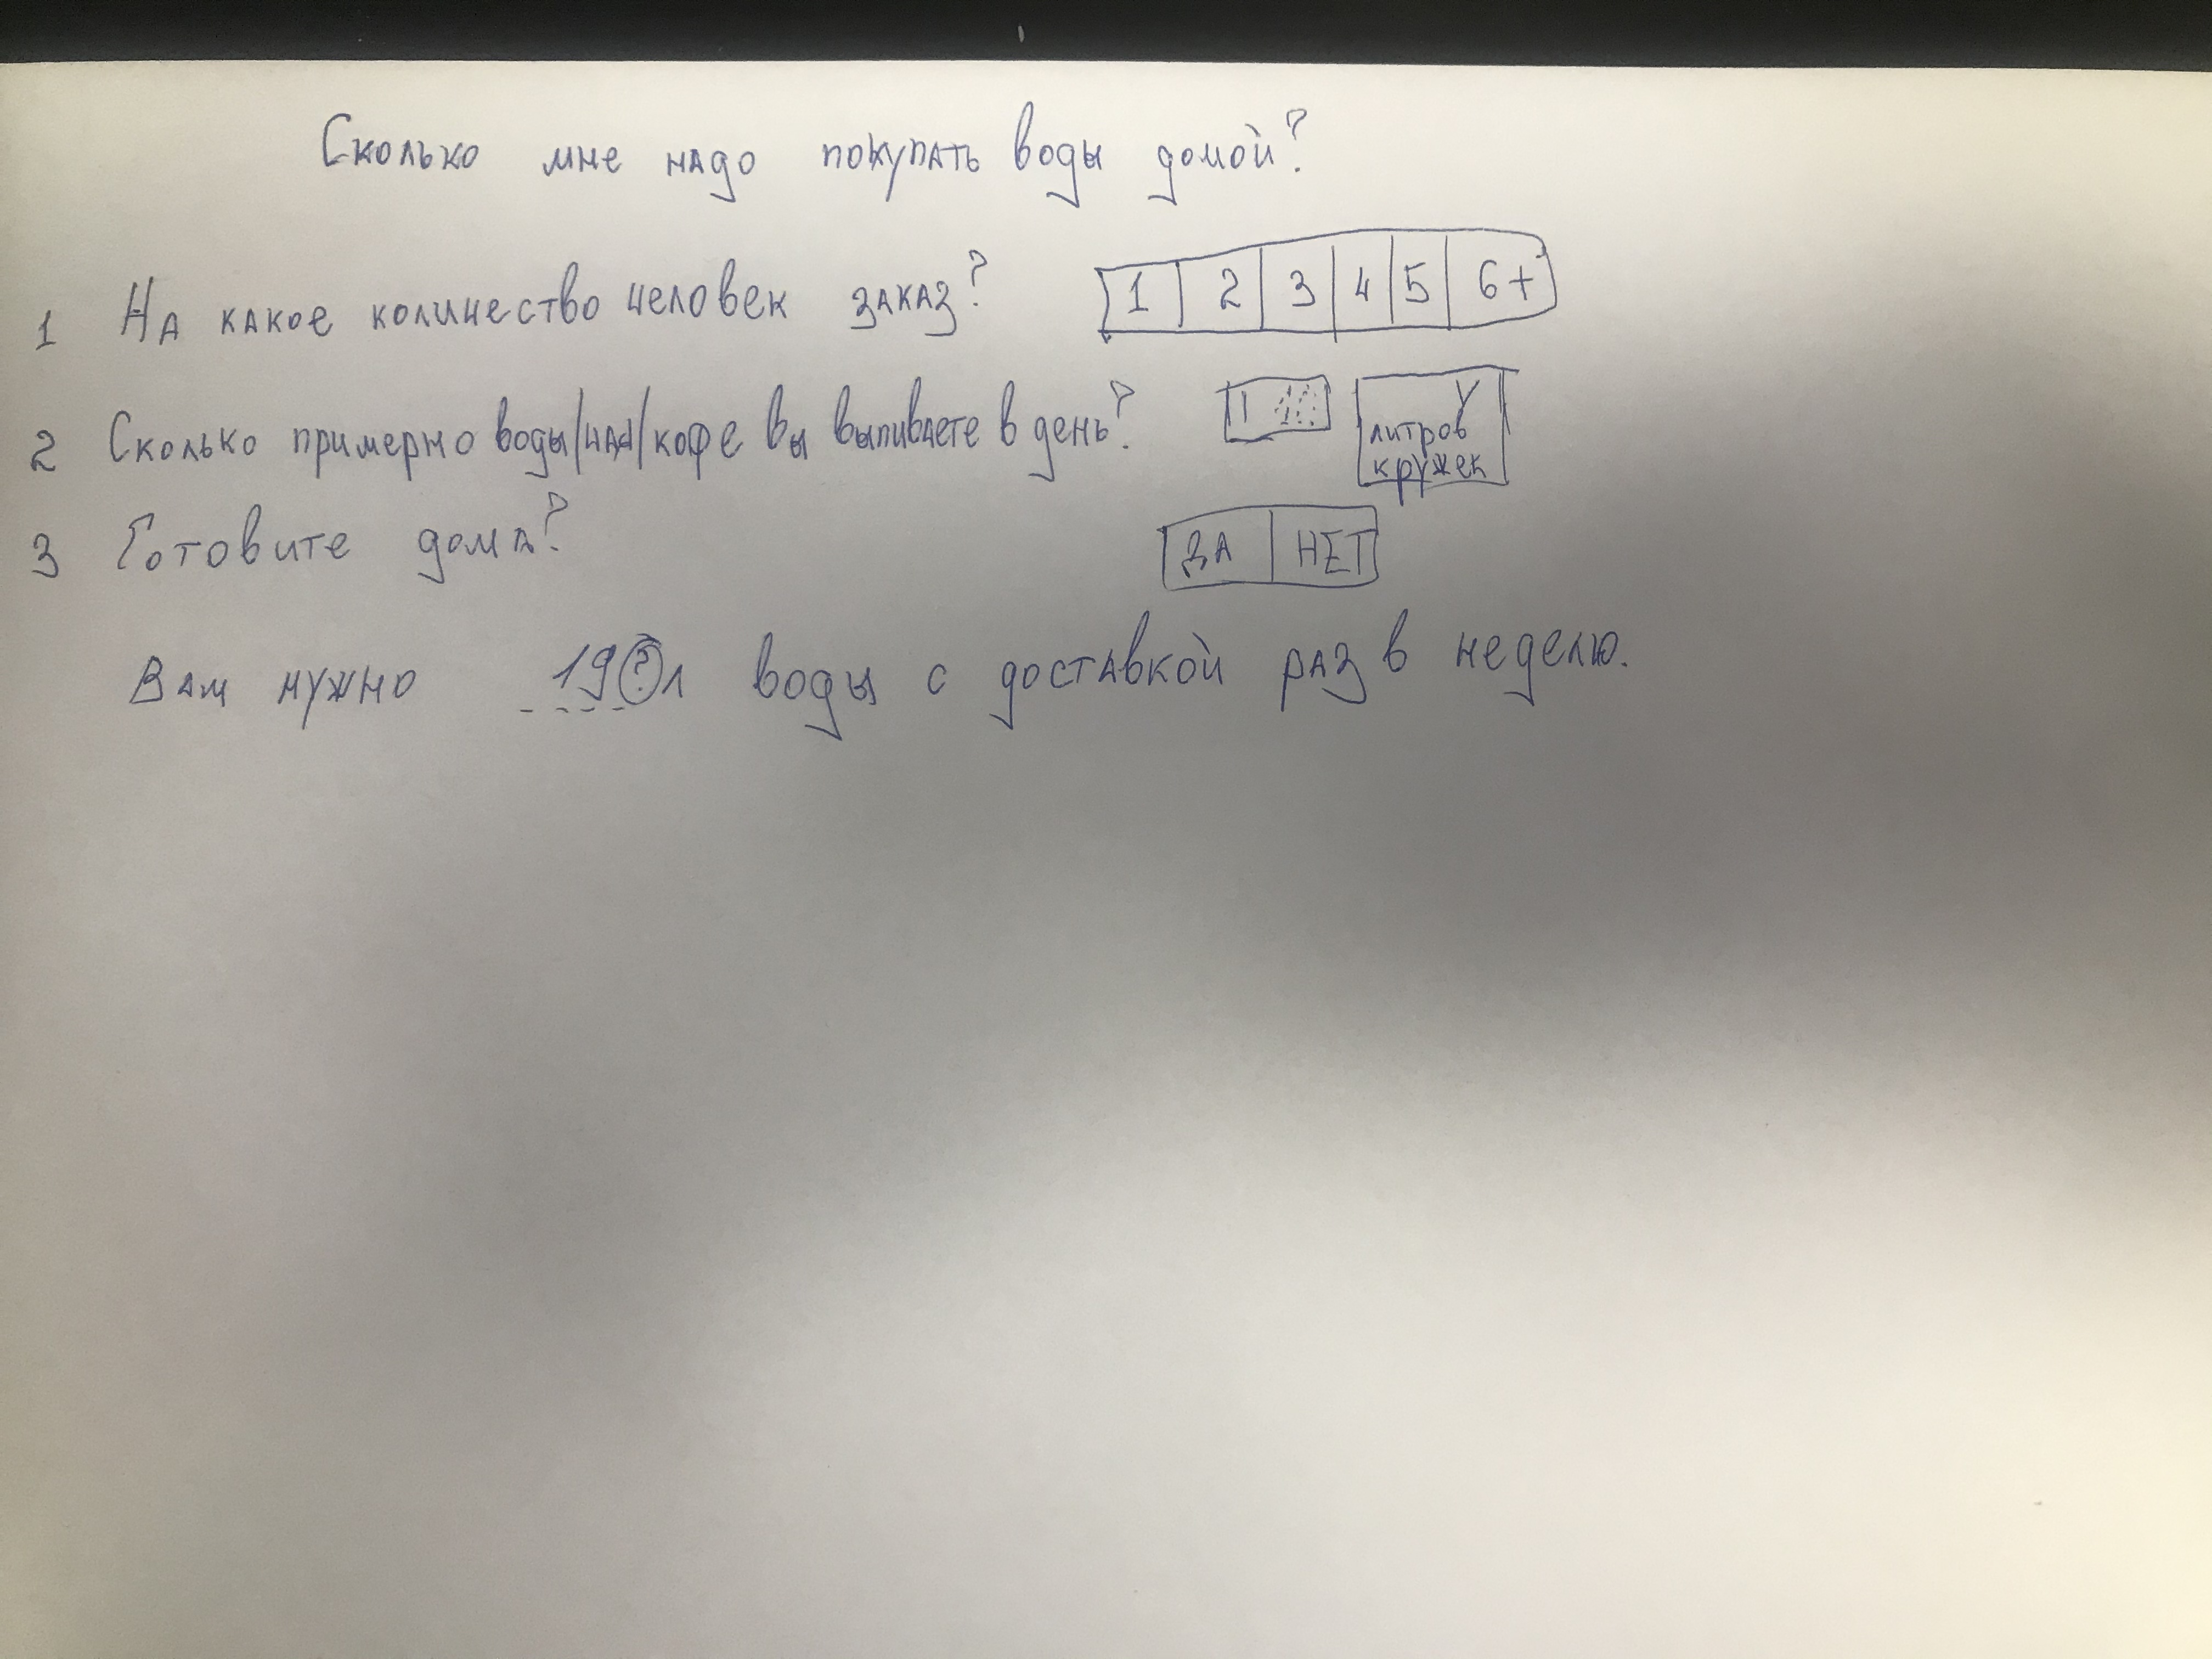 Сколько мне надо покупать воды домой?
1 На какое количество человек заказ? 1 2 3 4 5 6+
2 Сколько примерно воды/чая/кофе вы выпиваете в день?
литров
кружек
3 Готовите дома? ДА НЕТ
Вам нужно 19 л воды с доставкой раз в неделю.